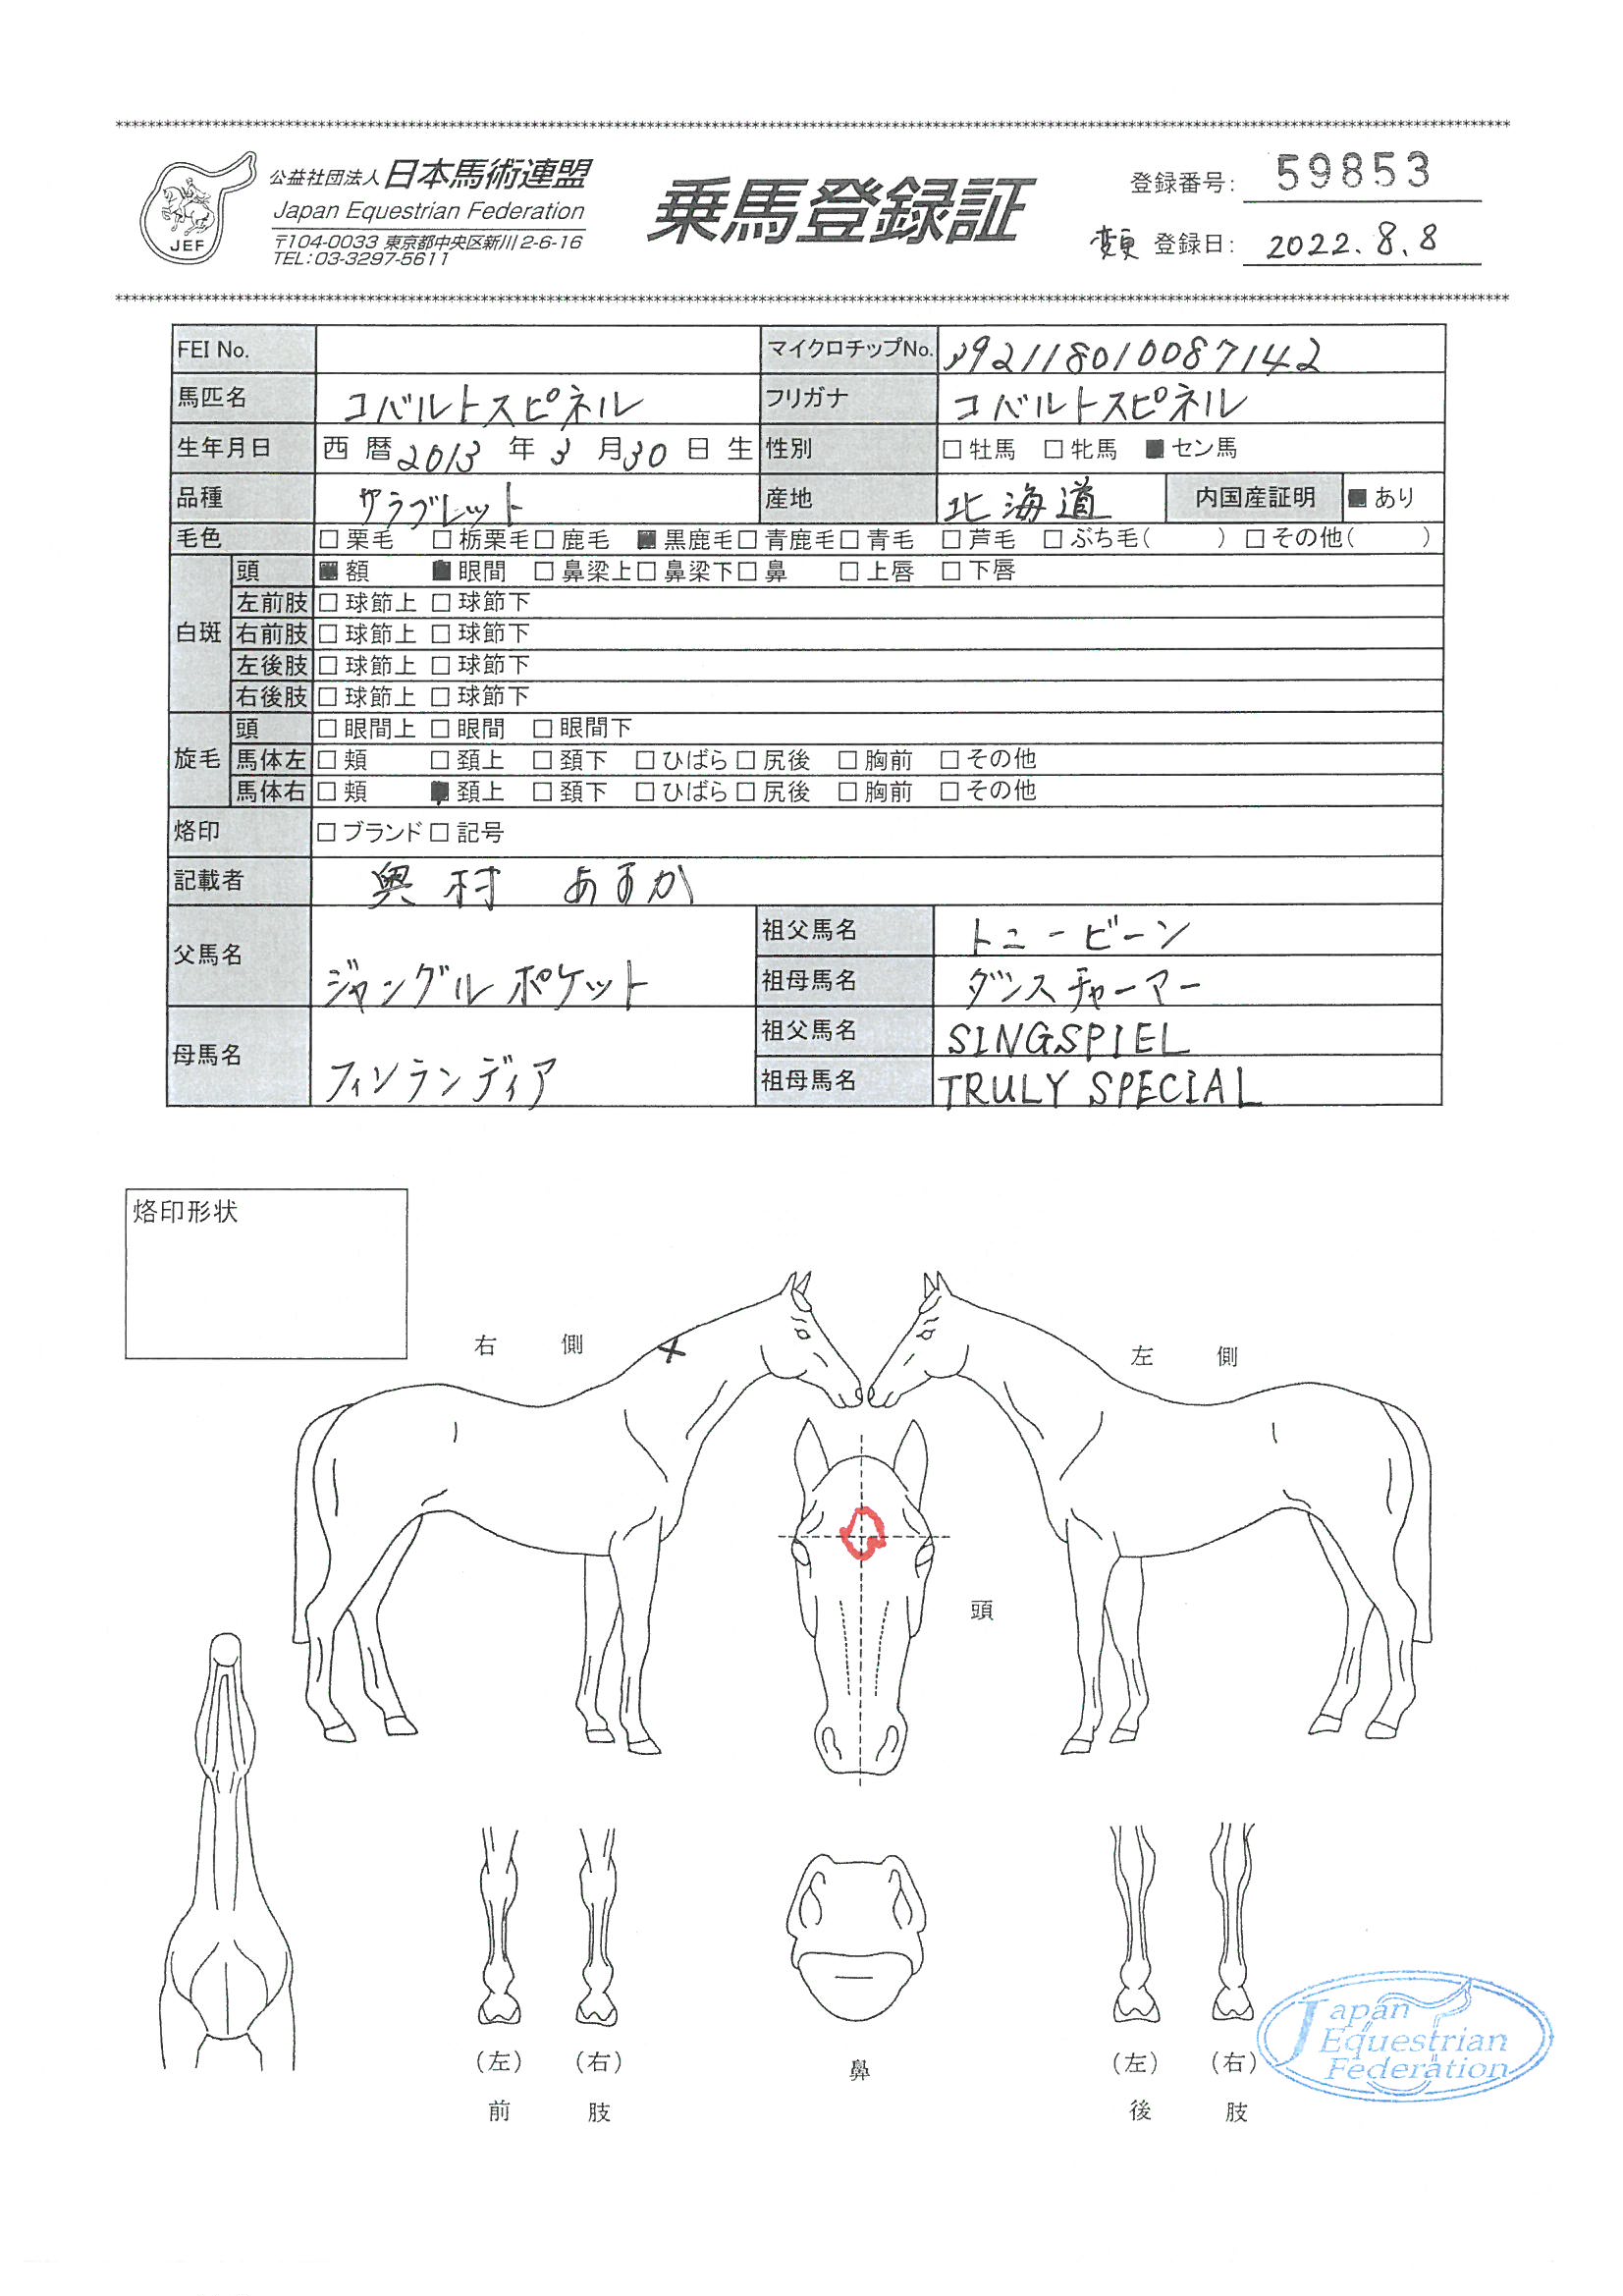 公益社団法人 日本馬術連盟
Japan Equestrian Federation
〒104-0033 東京都中央区新川2-6-16
TEL:03-3297-5611
JEF
乗馬登録証
登録番号: 59853
変更 登録日: 2022.8.8
FEI No. マイクロチップNo. 392118010087142
馬匹名 コバルトスピネル フリガナ コバルトスピネル
生年月日 西暦2013年3月30日生 性別 □牡馬 □牝馬 ■セン馬
品種 サラブレット 産地 北海道 内国産証明 ■あり
毛色 □栗毛 □栃栗毛 □鹿毛 ■黒鹿毛 □青鹿毛 □青毛 □芦毛 □ぶち毛( ) □その他( )
白斑
頭 ■額 ■眼間 □鼻梁上 □鼻梁下 □鼻 □上唇 □下唇
左前肢 □球節上 □球節下
右前肢 □球節上 □球節下
左後肢 □球節上 □球節下
右後肢 □球節上 □球節下
旋毛
頭 □眼間上 □眼間 □眼間下
馬体左 □頬 □頚上 □頚下 □ひばら □尻後 □胸前 □その他
馬体右 □頬 ■頚上 □頚下 □ひばら □尻後 □胸前 □その他
烙印 □ブランド □記号
記載者 奥村 あすか
父馬名 ジャングルポケット
祖父馬名 トニービーン
祖母馬名 ダンスチャーマー
母馬名 フィンランディア
祖父馬名 SINGSPIEL
祖母馬名 TRULY SPECIAL
烙印形状
右側
左側
頭
(左) (右)
前肢
鼻
(左) (右)
後肢
Japan
Equestrian
Federation